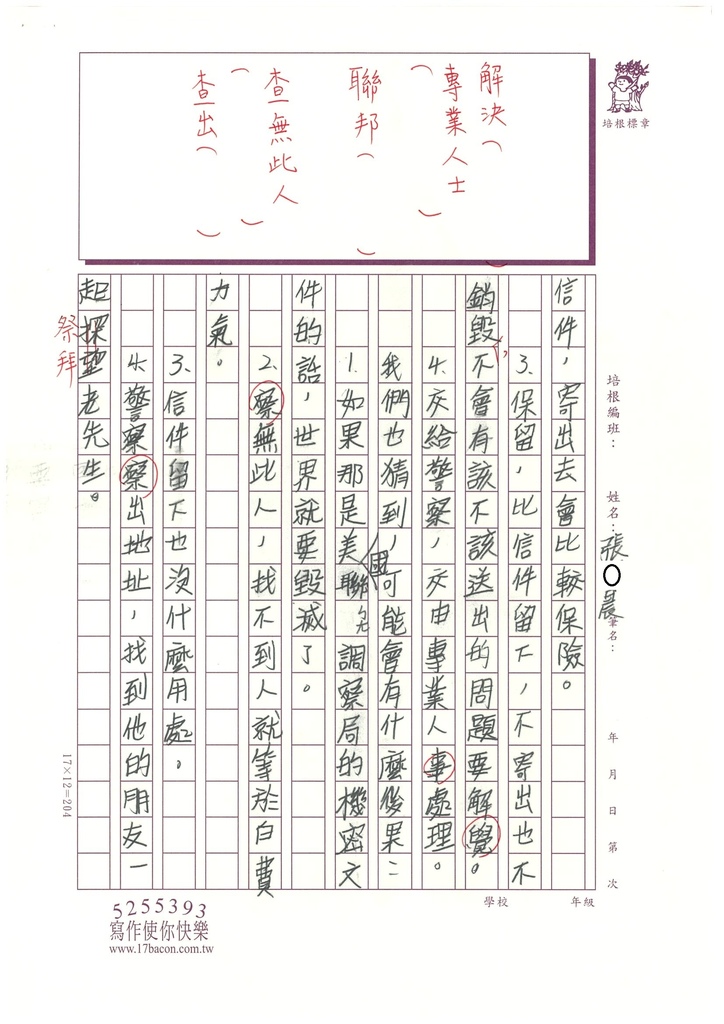 解決（　）
專業人士
（　）
聯邦（　）
查無此人
（　）
查出（　）
培根標章
培根編班：
姓名：張○晨
筆名：
年月日第次
年級
學校
信件，寄出去會比較保險。
3、保留，比信件留下，不寄出也不
銷毀，不會有該不該送出的問題要解覺。
4、交給警察，交由專業人事處理。
我們也猜到，可能會有什麼後果：
1、如果那是美國聯ㄅㄤ調察局的機密文
件的話，世界就要毀滅了。
2、察無此人，找不到人就等於白費
力氣。
3、信件留下也沒什麼用處。
4、警察察出地址，找到他的朋友一
起探望老先生。
祭拜
17×12=204
5255393
寫作使你快樂
www.17bacon.com.tw